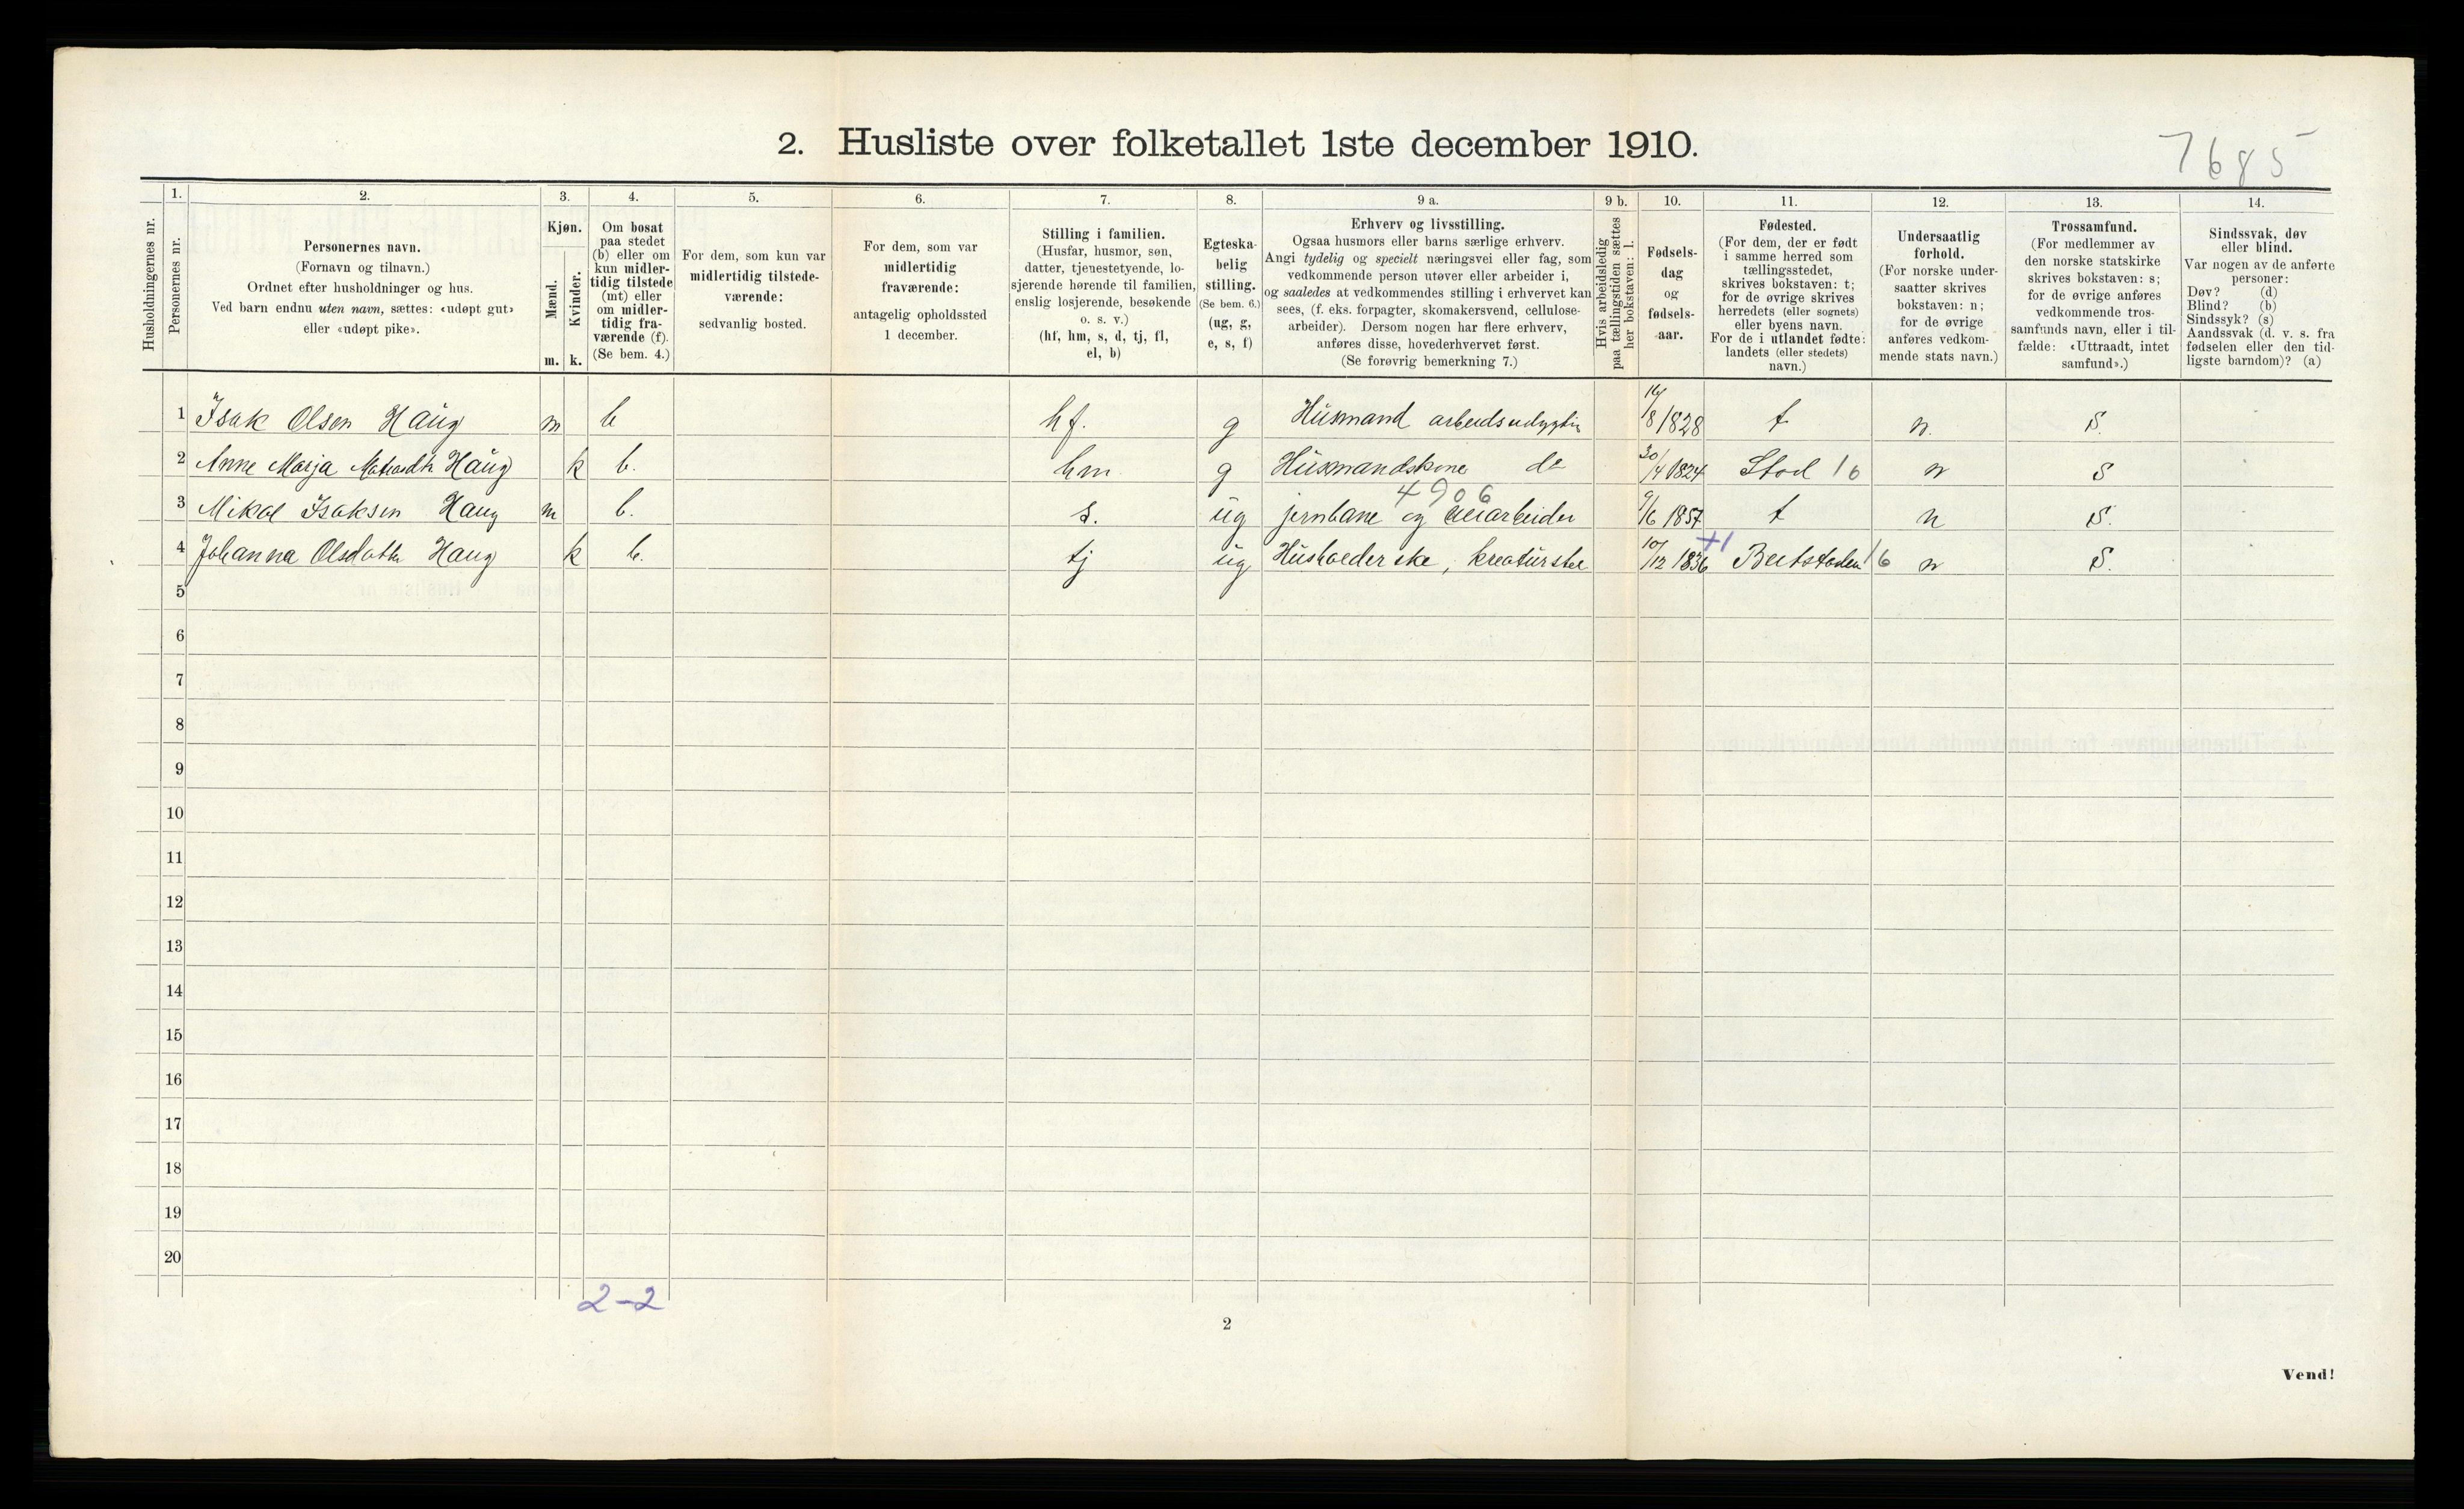 2. Husliste over folketallet 1ste december 1910.
7685
Husholdningernes nr.
1.
Personernes nr.
2.
Personernes navn.
(Fornavn og tilnavn.)
Ordnet efter husholdninger og hus.
Ved barn endnu uten navn, sættes: «udøpt gut»
eller «udøpt pike».
3.
Kjøn.
Mænd.
Kvinder.
m. k.
4.
Om bosat
paa stedet
(b) eller om
kun midler-
tidig tilstede
(mt) eller
om midler-
tidig fra-
værende (f).
(Se bem. 4.)
5.
For dem, som kun var
midlertidig tilstede-
værende:
sedvanlig bosted.
6.
For dem, som var
midlertidig
fraværende:
antagelig opholdssted
1 december.
7.
Stilling i familien.
(Husfar, husmor, søn,
datter, tjenestetyende, lo-
sjerende hørende til familien,
enslig losjerende, besøkende
o. s. v.)
(hf, hm, s, d, tj, fl,
el, b)
8.
Egteska-
belig
stilling.
(Se bem. 6.)
(ug, g,
e, s, f)
9 a.
Erhverv og livsstilling.
Ogsaa husmors eller barns særlige erhverv.
Angi tydelig og specielt næringsvei eller fag, som
vedkommende person utøver eller arbeider i,
og saaledes at vedkommendes stilling i erhvervet kan
sees, (f. eks. forpagter, skomakersvend, cellulose-
arbeider). Dersom nogen har flere erhverv,
anføres disse, hovederhvervet først.
(Se forøvrig bemerkning 7.)
9 b.
Hvis arbeidsledig
paa tællingstiden sættes
her bokstaven: l.
10.
Fødsels-
dag
og
fødsels-
aar.
11.
Fødested.
(For dem, der er født
i samme herred som
tællingsstedet,
skrives bokstaven: t;
for de øvrige skrives
herredets (eller sognets)
eller byens navn.
For de i utlandet fødte:
landets (eller stedets)
navn.)
12.
Undersaatlig
forhold.
(For norske under-
saatter skrives
bokstaven: n;
for de øvrige
anføres vedkom-
mende stats navn.)
13.
Trossamfund.
(For medlemmer av
den norske statskirke
skrives bokstaven: s;
for de øvrige anføres
vedkommende tros-
samfunds navn, eller i til-
fælde: «Uttraadt, intet
samfund».)
14.
Sindssvak, døv
eller blind.
Var nogen av de anførte
personer:
Døv? (d)
Blind? (b)
Sindssyk? (s)
Aandssvak (d. v. s. fra
fødselen eller den tid-
ligste barndom)? (a)
1 Isak Olsen Haug m b hf. g Husmand 16/8 1828 t n. S.
2 Anne Marja Haug k b. hm g Husmandskone do 30/4 1824 Stod 16 n S
4906
3 Mikal Isaksen Haug m b. s. ug jernbane og 9/6 1857 t n S.
+1
4 Johanna Olsdatter Haug k b. tj ug Husholderske, kreaturstel 10/12 1836 Beitstaden 16 n S.
5
6
7
8
9
10
11
12
13
14
15
16
17
18
19
20
2-2
2
Vend!